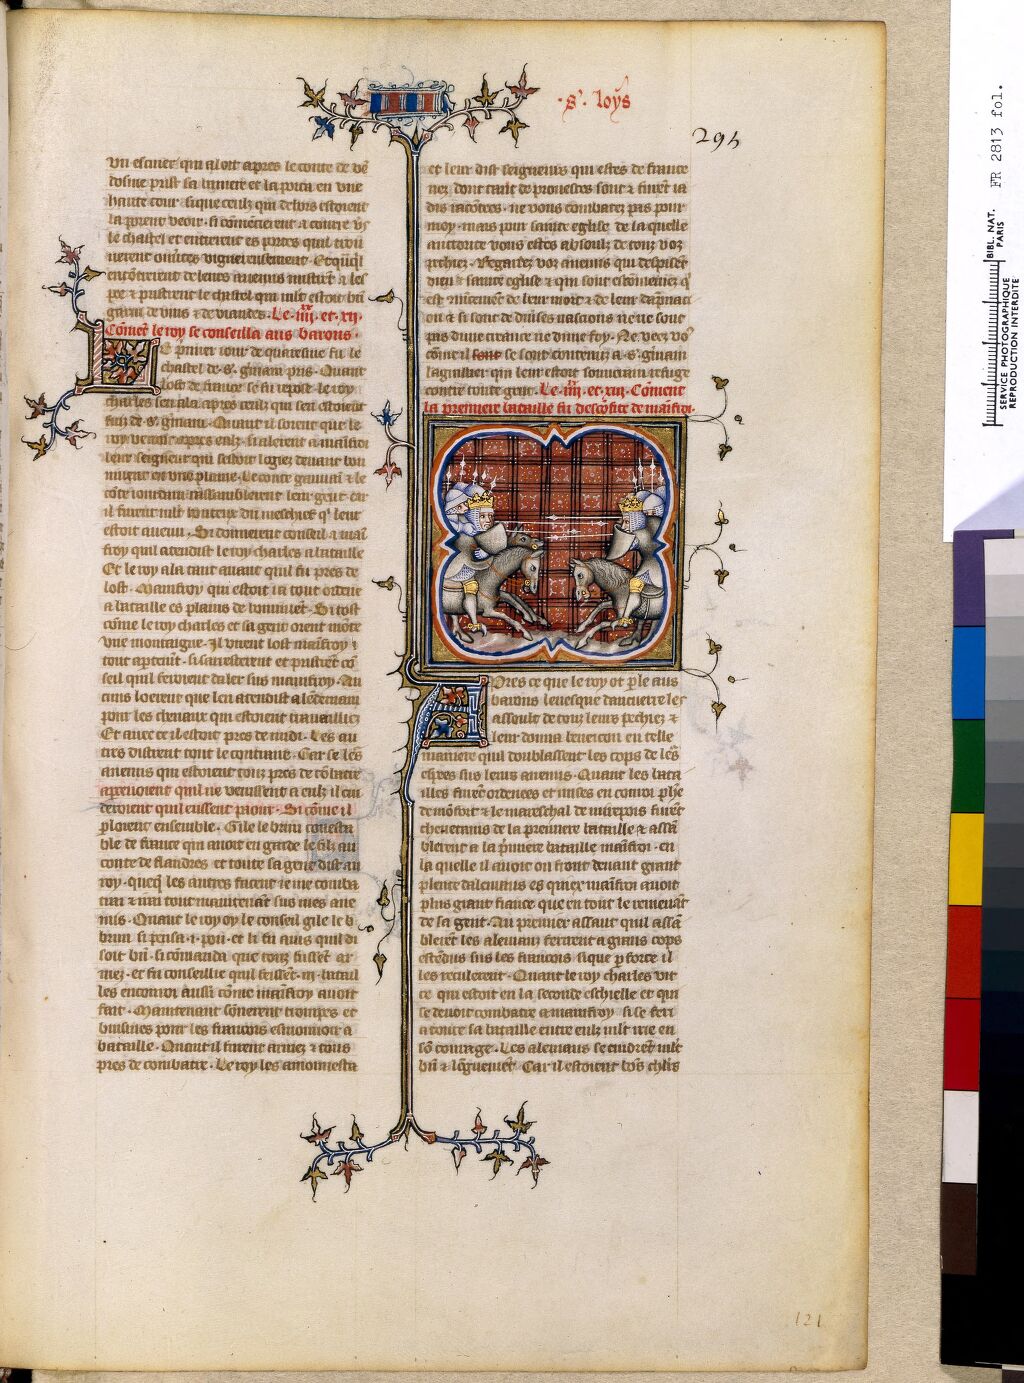 .s'. loys
295
vn escuier qui aloit apres le conte de vē
dosme prist sa baniere et la porta en vne
haute tour. si que ceulz qui dehors estoient
la porent veoir. si cōmēcierent a courre v̄s
le chastel et entrerent es portes quil trou
uerent ouuertes viguereusement.
encōtrerent de leurs anemis
et pristrent le chastel qui mlt estoit biē
garni de vins et de viandes. Le .iiii. et .xii.
Cōmēt le roy se conseilla aus barons.
Le p̄mier iour de quaresme fu le
chastel de .s. ḡmain pris. Quant
lost de france se fu repose le roy
charles sen ala apres ceulz qui sen estoient
fui de .s. ḡmain. Quant il sorent que le
roy venoit apres eulz. si alerent a mainfroi
leur seigneur qui sestoit logiez deuant bon
niuent en vne plaine. Le conte et le
cōte iourdain rassamblerent leur gent car
il furent mlt du meschief qi leur
estoit auenu. Si donnerent conseil a main
froy quil atendist le roy charles a la bataille
Et le roy ala tant auant quil fu pres de
lost. Mainfroy qui estoit ia tout ordene
a bataille es plains de bonniuēt. Si tost
cōme le roy charles et sa gent orent mōte
vne montaigne. Il virent lost mainfroy
tout apertemēt. si sarresterent et pristrēt cō
seil quil feroient daler sus mainfroy. Au
cuns loerent que len atendist a lendemain
pour les cheuaux qui estoient trauailliez
Et auec ce il estoit pres de midi. Les au
tres distrent tout le contraire. Car se les
anemis qui estoient touz pres de cōbatre
aperceuoient quil ne venissent a eulz il cui
deroient quil eussent paour. Si cōme il
ploient ensemble. Gile le brun conesta
ble de france qui auoit en garde le filz au
conte de flandres et toute sa gent dist au
roy. queq̄ les autres facent ie me comba
trai et irai tout maintenant sus mes ane
mis. Quant le roy oy le conseil gile le b
brun si pensa .i. pou. et li fu auis quil di
soit biē. si cōmanda que touz fussēt ar
mez. et fu conseillie quil feissēt .iii. batail
les encontre aussi cōme mainfroy auoit
fait. Maintenant sōnerent trompes et
buisines pour les francois esmouuoir a
bataille. Quant il furent armez et touz
pres de combatre. Le roy les amonnesta
et leur dist seigneurs qui estes de france
nez dont tant de proesces sont et furēt ia
dis racōtees. ne vous combatez pas pour
moy. mais pour sainte eglise de la quelle
auctorite vous estes absoulz de touz voz
pechiez. Regardez voz anemis qui despisēt
dieu et sainte eglise et qui sont escōmeniez q̄
est cōmencemēt de leur mort et de leur dāpnaci
on et si sont de diuerses nacions ne ne sont
pas dune creance ne dune foy. Ne veez vo9
cōme il sont se sont contenuz a .s. ḡmain
laguillier qui leur estoit souuerain refuge
contre toute gent. Le .iiii. et .xiii. Cōment
la premiere bataille fu descōfite de mainfroi.
Apres ce que le roy ot ple aus
barons leuesque daucuerre les
assoult de touz leurs pechiez et
leur donna beneicon en telle
maniere quil doublassent les cops de leurs
espees sus leurs anemis. Quant les bata
illes furēt ordenees et mises en conroi phe
de mōfort et le mareschal de mirepois furēt
cheuetains de la premiere bataille et assā
blerent a la p̄miere bataille mainfroi. en
la quelle il auoit ou front deuant grant
plente dalemans es quiex mainfroi auoit
plus grant fiance que en tout le remenāt
de sa gent. Au premier assaut quil assā
blerēt les alemans ferirent a grans cops
estēdus sus les francois. si que p force il
les reculerent. Quant le roy charles vit
ce qui estoit en la seconde eschielle et qui
se deuoit combatre a mainfroy. si se feri
a toute sa bataille entre eulz mlt irie en
sō courage. Les alemans se cuidrēt mlt
biē et lōguemēt. Car il estoient bōs chlrs
121
BIBL. NAT. PARIS
FR 2813 fol.
SERVICE PHOTOGRAPHIQUE
REPRODUCTION INTERDITE